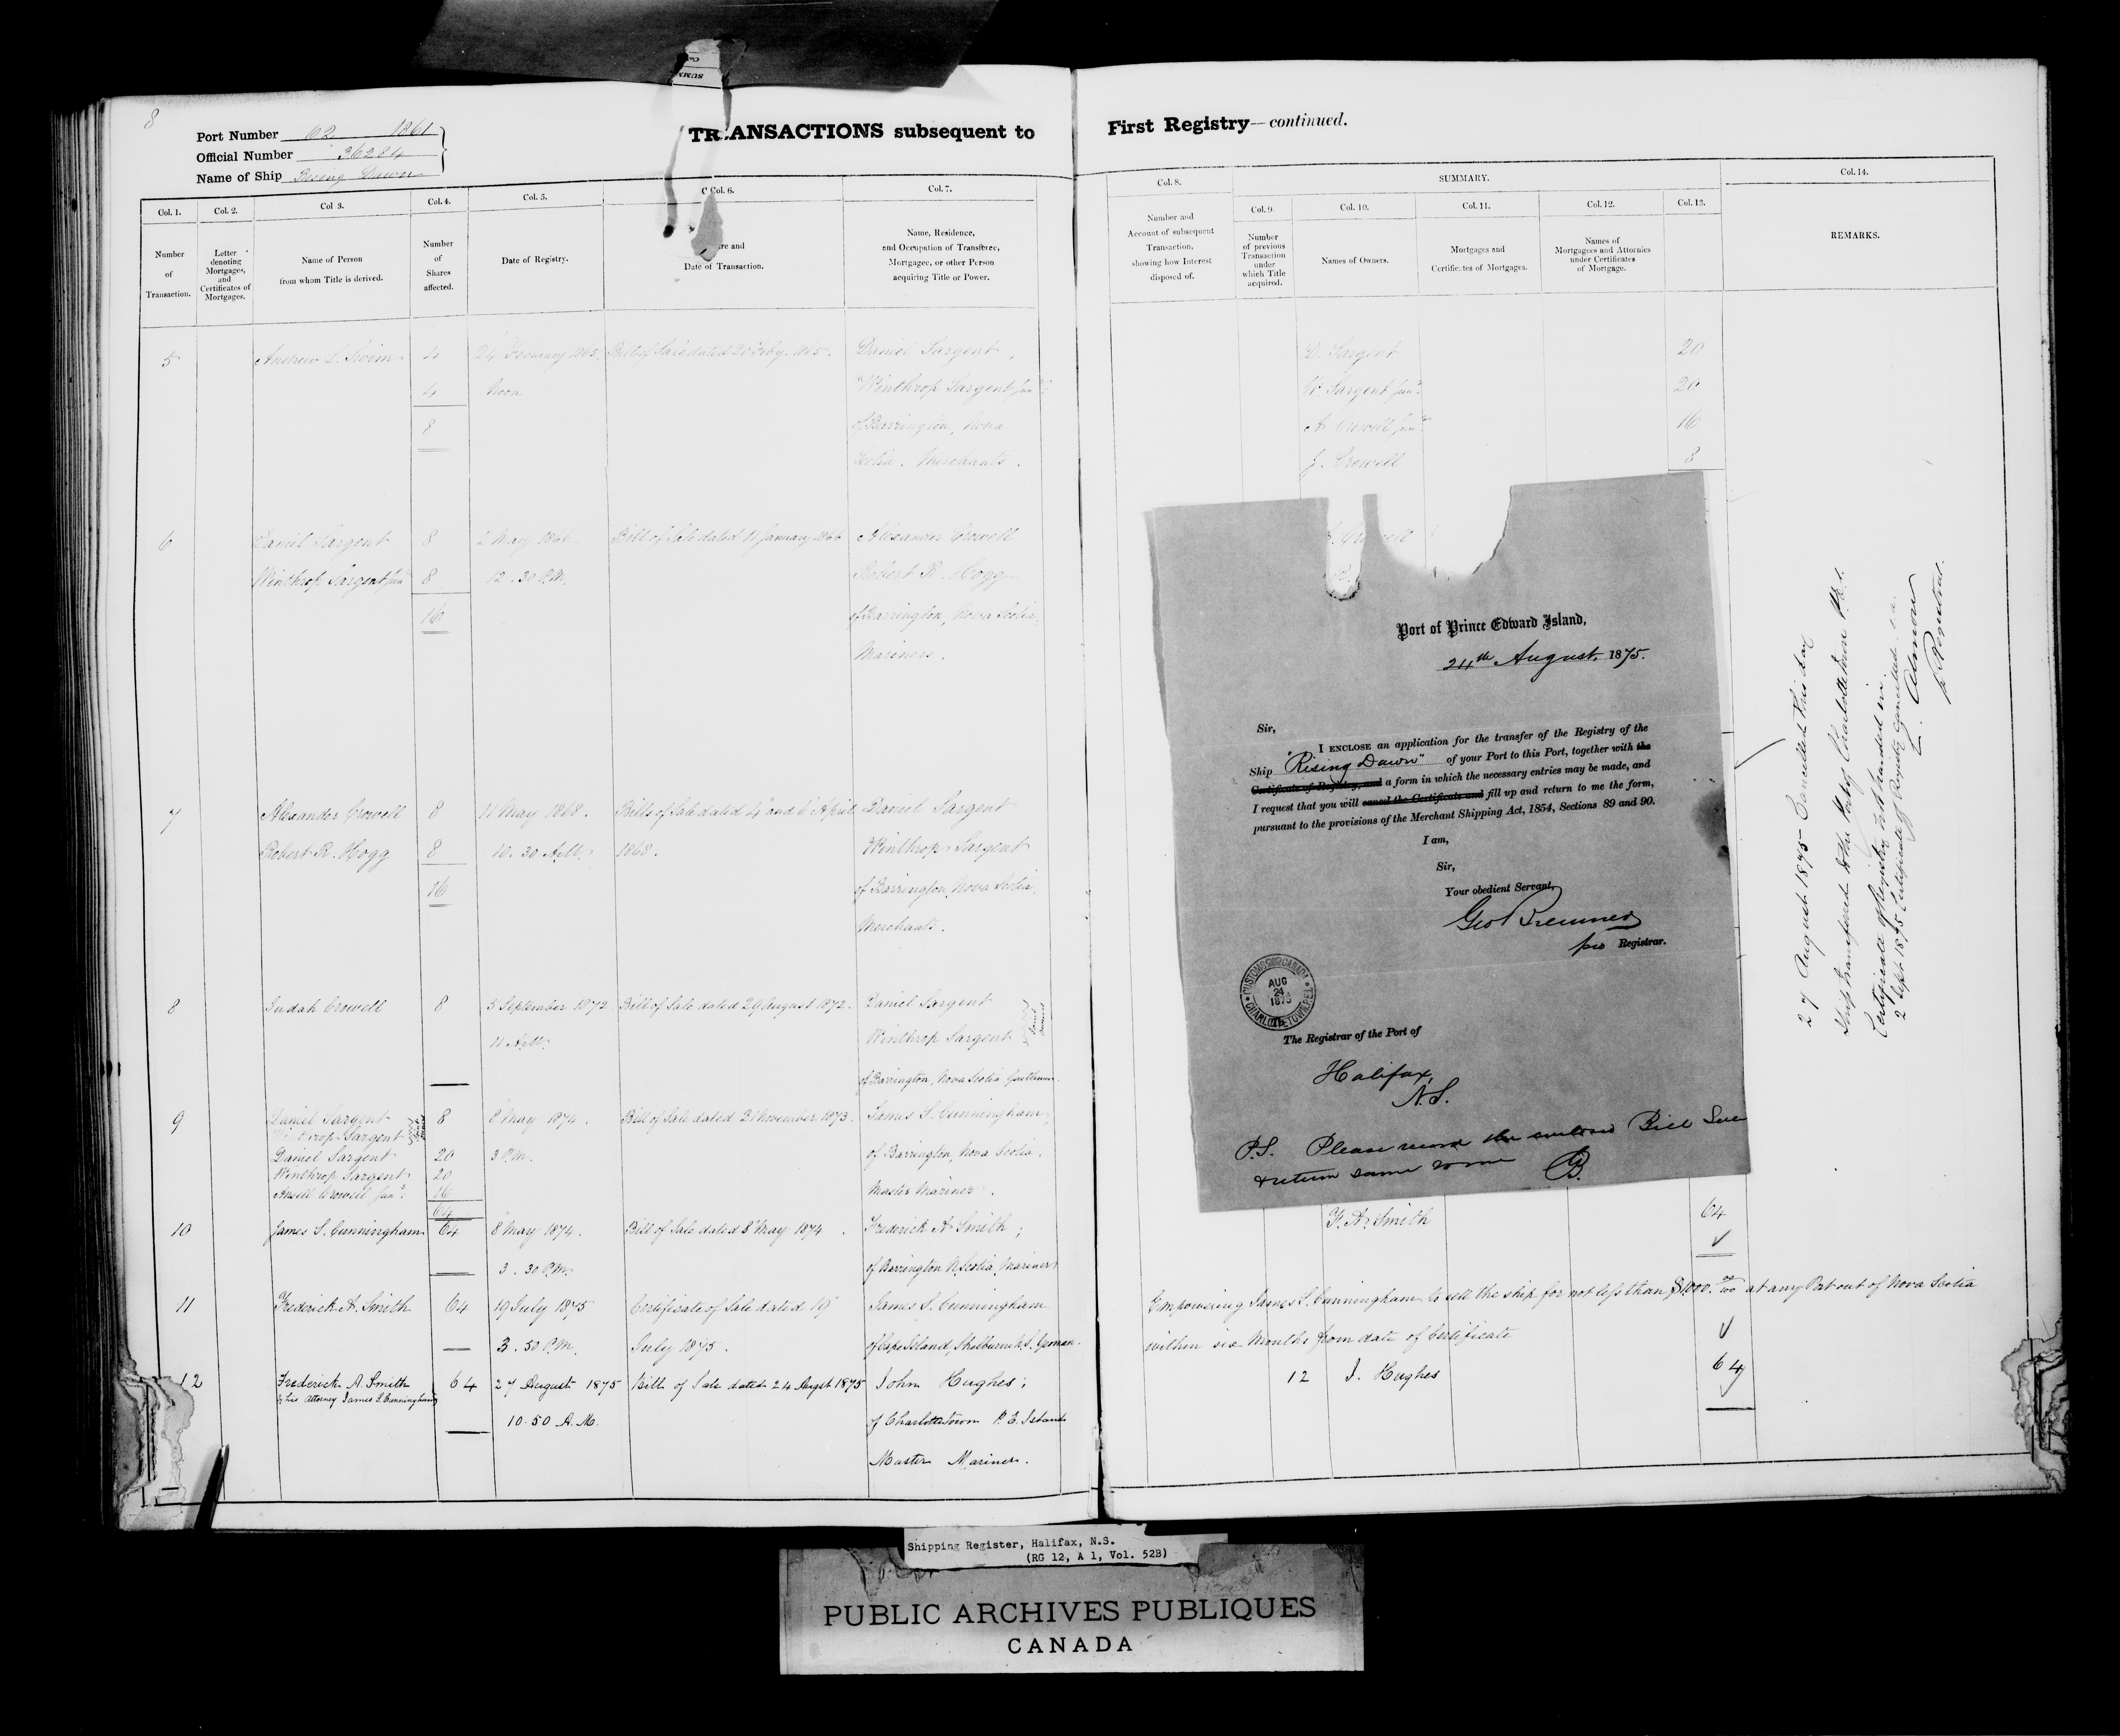 8
Port Number 62 1861
Official Number 36284
Name of Ship Rising Dawn
TRANSACTIONS subsequent to
First Registry—continued.
Col. 1.
Number
of
Transaction.
Col. 2.
Letter
denoting
Mortgages,
and
Certificates of
Mortgages.
Col 3.
Name of Person
from whom Title is derived.
Col. 4.
Number
of
Shares
affected.
Col. 5.
Date of Registry.
Col. 6.
re and
Date of Transaction.
Col. 7.
Name, Residence,
and Occupation of Transferee,
Mortgagee, or other Person
acquiring Title or Power.
Col. 8.
Number and
Account of subsequent
Transaction,
showing how Interest
disposed of.
SUMMARY.
Col. 9.
Number
of previous
Transaction
under
which Title
acquired.
Col. 10.
Names of Owners.
Col. 11.
Mortgages and
Certificates of Mortgages.
Col. 12.
Names of
Mortgagees and Attornies
under Certificates
of Mortgage.
Col. 13.
Col. 14.
REMARKS.
5 Andrew L. Swim 4 24 February 1865. Bill of Sale dated 20 Feby. 1865. Daniel Sargent, D. Sargent 20
4 Noon Winthrop Sargent junr. W. Sargent junr. 20
8 of Barrington, Nova A. Crowell junr. 16
Scotia. Merchants. J. Crowell 8
6 Daniel Sargent 8 2 May 1866. Bill of Sale dated 11 January 1866 Alexander Crowell
Winthrop Sargent junr. 8 12.30 P.M. Robert R. Hogg
16 of Barrington, Nova Scotia,
Mariners.
7 Alexander Crowell 8 11 May 1868. Bills of Sale dated 4 and 6 April Daniel Sargent
Robert R. Hogg 8 10.30 A.M. 1868. Winthrop Sargent
16 of Barrington, Nova Scotia,
Merchants.
8 Judah Crowell 8 5 September 1872 Bill of Sale dated 29 August 1872. Daniel Sargent
11 A.M. Winthrop Sargent
of Barrington, Nova Scotia Gentlemen.
Joint Owners
9 Daniel Sargent 8 8 May 1874. Bill of Sale dated 21 November 1873. James S. Cunningham,
Winthrop Sargent
Joint Owners
Daniel Sargent 20 3 P.M. of Barrington, Nova Scotia.
Winthrop Sargent 20
Ansell Crowell junr. 16 Master Mariner.
64
10 James S. Cunningham 64 8 May 1874. Bill of Sale dated 8 May 1874. Frederick A. Smith; F. A. Smith 64
3.30 P.M. of Barrington N. Scotia Mariner
11 Frederick A. Smith 64 19 July 1875 Certificate of Sale dated 19 James S. Cunningham
3.50 P.M. July 1875. of Cape Island, Shelburne N.S. Yeoman.
Empowering James S. Cunningham to sell the ship for not less than $1000. 00/100 at any Port out of Nova Scotia
within six Months from date of Certificate
12 Frederick A. Smith 64 27 August 1875 Bill of Sale dated 24 August 1875 John Hughes; 12 J. Hughes 64
by his Attorney James S. Cunningham
10.50 A.M. of Charlottetown P. E. Island
Master Mariner.
Port of Prince Edward Island,
24th August, 1875.
Sir,
I ENCLOSE an application for the transfer of the Registry of the
Ship "Rising Dawn" of your Port to this Port, together with the
Certificate of Registry, and a form in which the necessary entries may be made, and
I request that you will cancel the Certificate and fill up and return to me the form,
pursuant to the provisions of the Merchant Shipping Act, 1854, Sections 89 and 90.
I am,
Sir,
Your obedient Servant,
Geo Bremner
pro Registrar.
CUSTOMS CANADA
AUG
24
1875
CHARLOTTETOWN P.E.I.
The Registrar of the Port of
Halifax,
N.S.
P.S. Please record the enclosed Bill Sale
& return same to me
GB.
27 August 1875 Cancelled this day
Ship transferred to the Port of Charlottetown P.E.I.
Certificate of Registry not handed in.
2 Sept 1875 Certificate of Registry cancelled
Almon
p Registrar.
Shipping Register, Halifax, N.S.
(RG 12, A 1, Vol. 52B)
PUBLIC ARCHIVES PUBLIQUES
CANADA